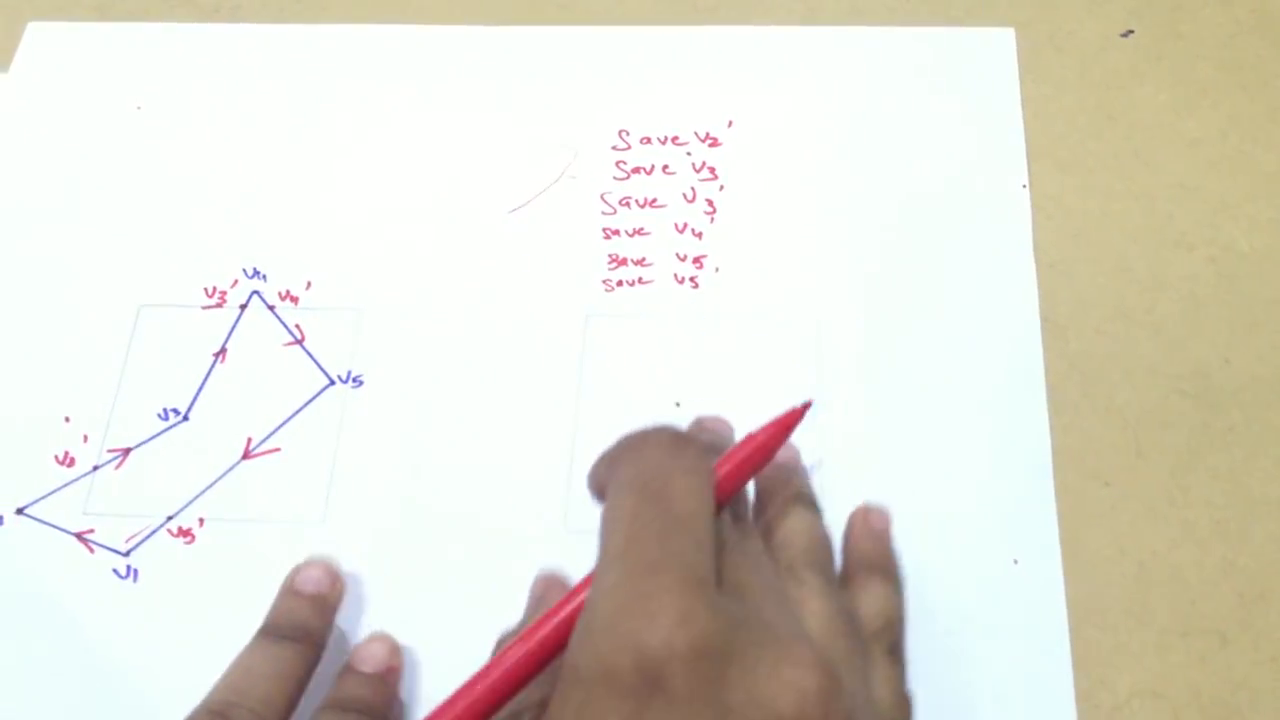 Save V2'
Save V3
Save V3'
save V4'
save V5
save V5'
V4
V3' V4'
V5
V3
V2'
V5'
V1